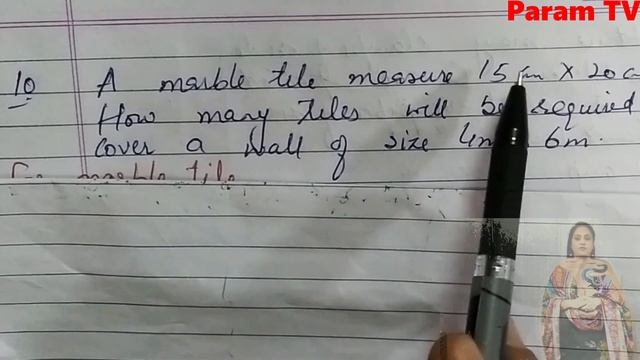 Param TV
10 A marble tile measure 15 cm X 20 c
How many tiles will be required
cover a wall of size 4m 6m.
marble tile